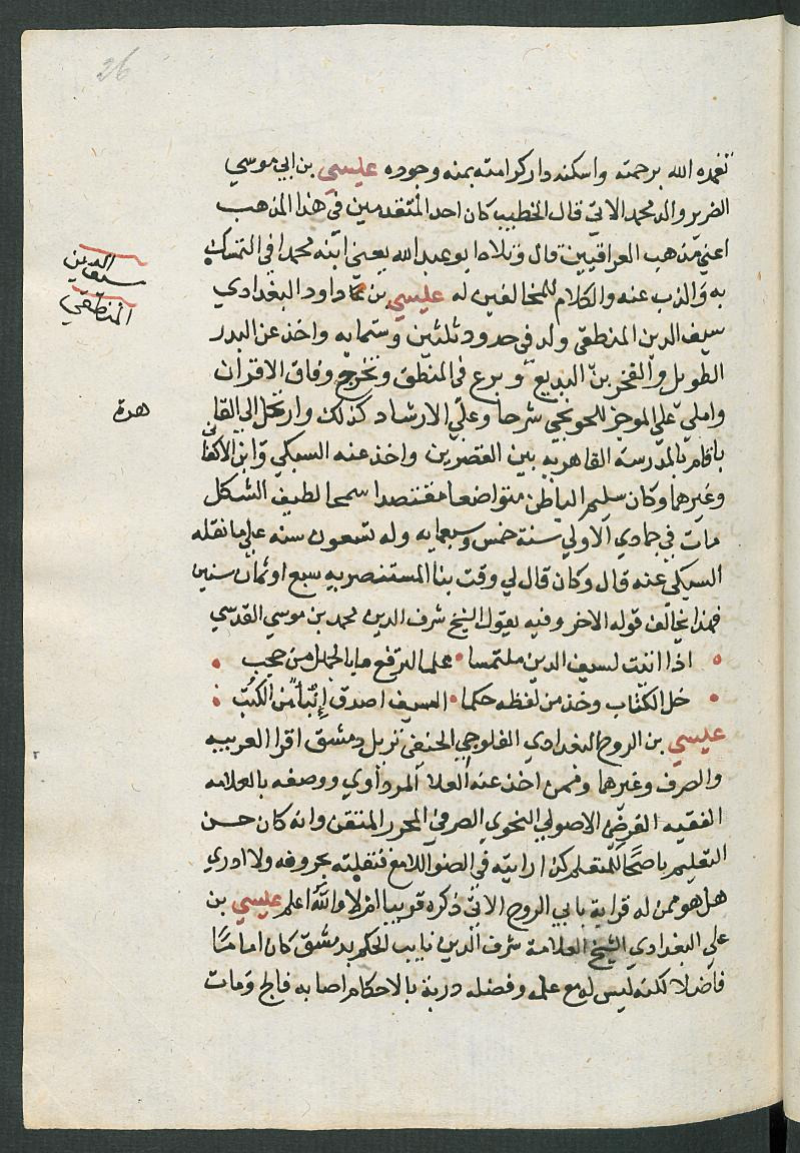 26
تغمده الله برحمته واسكنه دار كرامته بمنه وجوده عليسي بن ابي موسي
الضرير والد محمد الاتي قال الخطيب كان احد المتقدمين في هذا المذهب
اعني مذهب العراقيين قال وتلاه ابو عبد الله يعني ابنه محمدا في التمسك
به والذب عنه والكلام للمخالفين له عليسي بن داود البغدادي
سيف الدين المنطقي ولد في حدود ثلثين وستمايه واخذ عن البدر
الطويل والفخر بن البديع وبرع في المنطق وتخرج وفاق الاقران
واملي علي الموجز للخونجي شرحا وعلي الارشاد كذلك وارتحل الي القا
هرة
باقام بالمدرسة القاهريه بين القصرين واخذ عنه السبكي وابن الاكفا
ني
وغيرهما وكان سليم الباطن متواضعا مقتصدا سمحا لطيف الشكل
مات في جمادي الاولي سنة خمس وسبعمايه وله تسعون سنه علي ما نقله
السبكي عنه قال وكان قال لي وقت بنا المستنصريه سبع او ثمان سنين
فهذا يخالف قوله الاخر وفيه يقول الشيخ شرف الدين محمد بن موسي القدسي
اذا اتيت لسيف الدين ملتمسا علما لترفع ما بالجهل من حجب
خل الكتاب وخذ من لفظه حكما السيف اصدق إنباً من الكتب
عليسي بن الروح البغدادي الفلوجي الحنفي نزيل دمشق اقرا العربيه
والصرف وغيرهما وممن اخذ عنه العلا المرداوي ووصفه بالعلامه
الفقيه الفرضي الاصولي النحوي الصرفي المحرر المتقن وانه كان حسن
التعليم ناصحا للمتعلم كذا رايته في الضوء اللامع فنقلته بحروفه ولا ادري
هل هو ممن له قرابة بابي الروح الاتي ذكره قريبا ام لا والله اعلم عليسي بن
علي البغدادي الشيخ العلامة شرف الدين نايب الحكم بدمشق كان اماما
فاضلا لكنه ليس له مع علمه وفضله دربة بالاحكام اصابه فالج ومات
سيف الدين
المنطقي